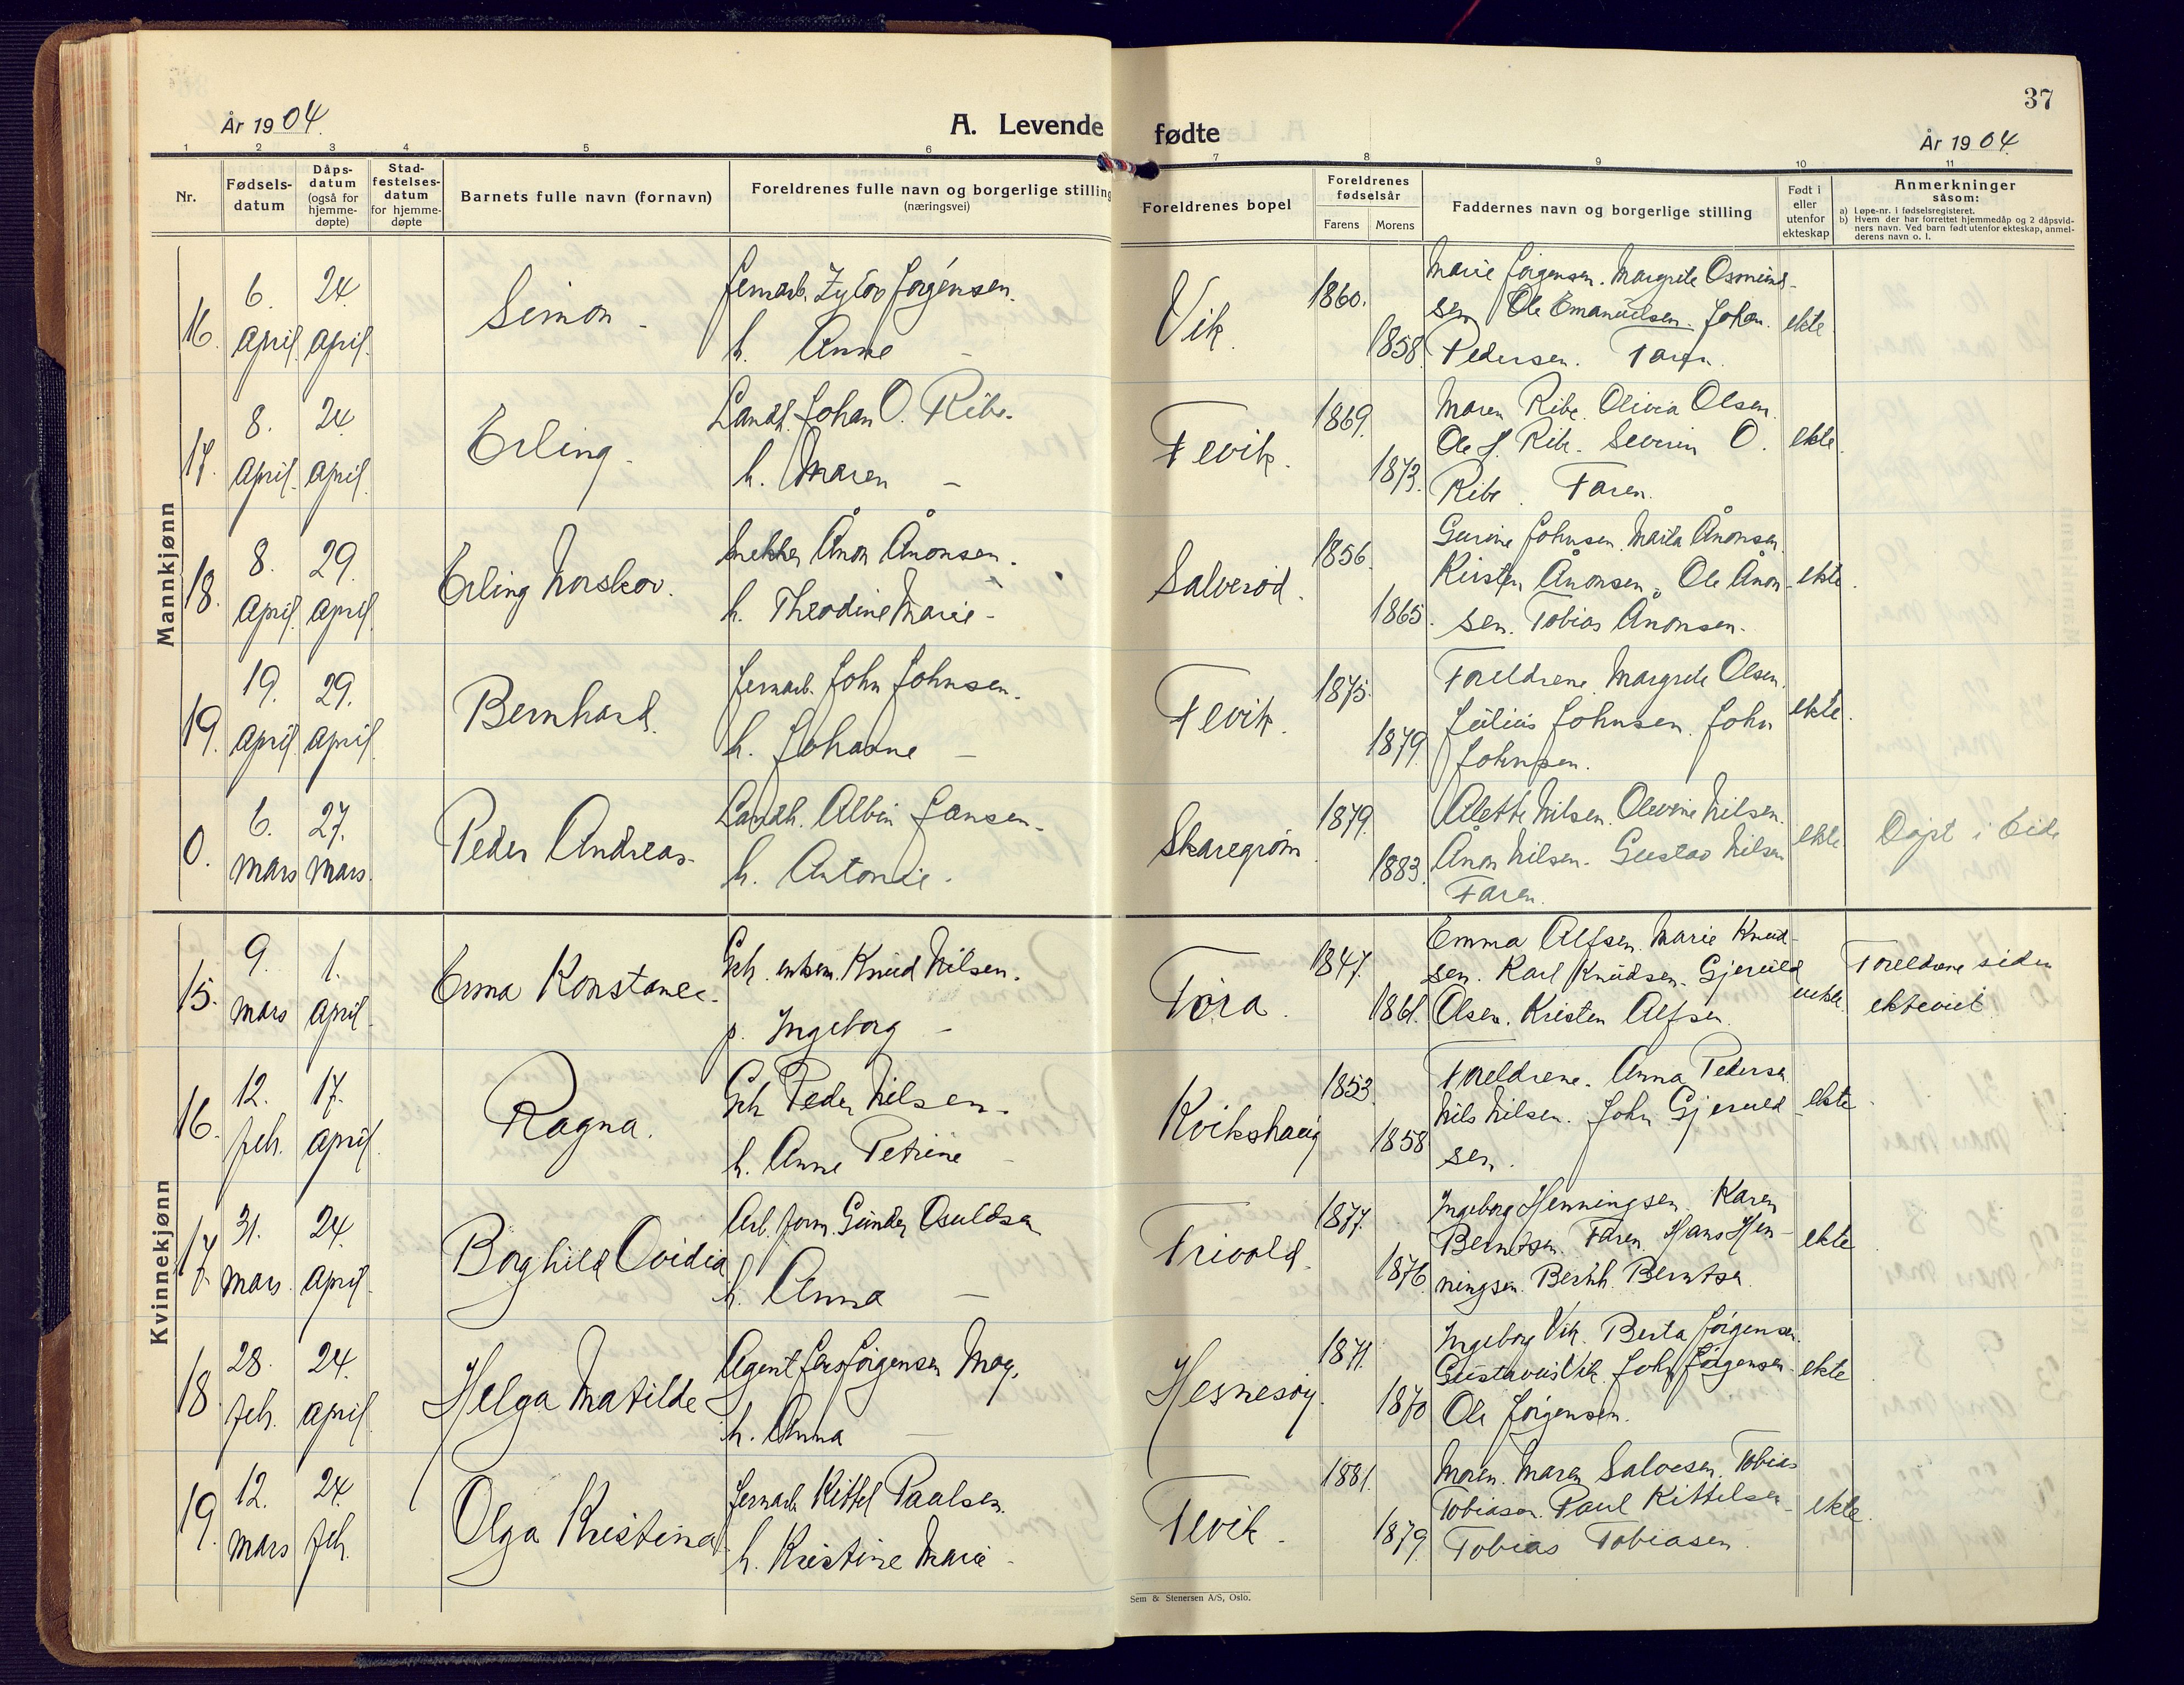 37
År 1904.
A. Levende fødte
År 1904.
1 2 3 4 5 6 7 8 9 10 11
Nr.
Fødsels-
datum
Dåps-
datum
(også for
hjemme-
døpte)
Stad-
festelses-
datum
for hjemme-
døpte
Barnets fulle navn (fornavn)
Foreldrenes fulle navn og borgerlige stilling
(næringsvei)
Foreldrenes bopel
Foreldrenes
fødselsår
Farens Morens
Faddernes navn og borgerlige stilling
Født i
eller
utenfor
ekteskap
Anmerkninger
såsom:
a) Løpe-nr. i fødselsregisteret.
b) Hvem der har forrettet hjemmedåp og 2 dåpsvid-
ners navn. Ved barn født utenfor ekteskap, anmel-
derens navn o. l.
Mannkjønn
16. 6. April 24. April
Simon
Jernarb. Jørgensen.
h. Anne -
Vik.
1860.
1858.
Marie Jørgensen. Margrete Osmund-
sen Ole Emanuelsen. Johan.
Pedersen. Faren.
ekte
17. 8. April 24. April
Erling.
Landh. Johan O. Ribe.
h. Maren -
Fevik.
1869.
1873.
Maren Ribe. Olivia Olsen.
Ole J. Ribe. Severin O.
Ribe. Faren.
ekte.
18. 8. April 29. April
Erling Norskov.
Snekker Ånon Ånonsen.
h. Theodine Marie -
Salverød.
1856.
1865.
Gurine Johnsen. Marta Ånonsen.
Kirsten Ånonsen. Ole Ånon-
sen. Tobias Ånonsen.
ekte.
19. 19. April 29. April
Bernhard.
Jernarb. John Johnsen.
h. Johanne -
Fevik.
1875.
1879.
Foreldrene. Margrete Olsen.
Julius Johnsen. John
Johnsen.
ekte.
0. 6. Mars 27. Mars.
Peder Andreas.
Landh. Albin Jansen.
h. Antonie.
Skaregrøm.
1879.
1883.
Alette Nilsen. Olevine Nilsen.
Ånon Nilsen. Gustav Nilsen
Faren.
ekte
Døpt i Eide
Kvinnekjønn
15. 9. Mars 1. April
Erma Konstance.
Gbr. enkem. Knud Nilsen.
p. Ingeborg -
Tøra.
1847.
1861.
Emma Alfsen. Marie Knud-
sen. Karl Knudsen. Gjeruld
Olsen. Kristen Alfsen.
uekte.
Foreldrene siden
ekteviet.
16. 12. Feb. 17. April
Ragna.
Gbr. Peder Nilsen.
h. Anne Petrine -
Kvikshaug
1853.
1858
Foreldrene. Anna Pedersen.
Nils Nilsen. John Gjeruld
sen.
ekte.
17. 31. Mars. 24. April
Borghild Ovidia
Arb. form. Gunder Osuldsen
h. Anna -
Trivold.
1877.
1876.
Ingeborg Henningsen. Karen
Berntsen. Faren. Hans Hen-
ningsen. Bernh. Berntsen.
ekte
18. 28. Feb. 24. April
Helga Matilde
Agent Jørgensen Moy.
h. Anna -
Hesnesøy.
1871.
1870
Ingeborg Vik. Berta Jørgensen.
Gustavus Vik. John Jørgensen.
Ole Jørgensen.
ekte
19. 12. Mars 24. Feb.
Olga Kristina
Jernarb. Kittel Paalsen.
h. Kristine Marie -
Fevik.
1881.
1879.
Moren. Maren Salvesen. Tobias
Tobiasen. Paul Kittelsen
Tobias Tobiasen.
ekte.
Sem & Stenersen A/S, Oslo.